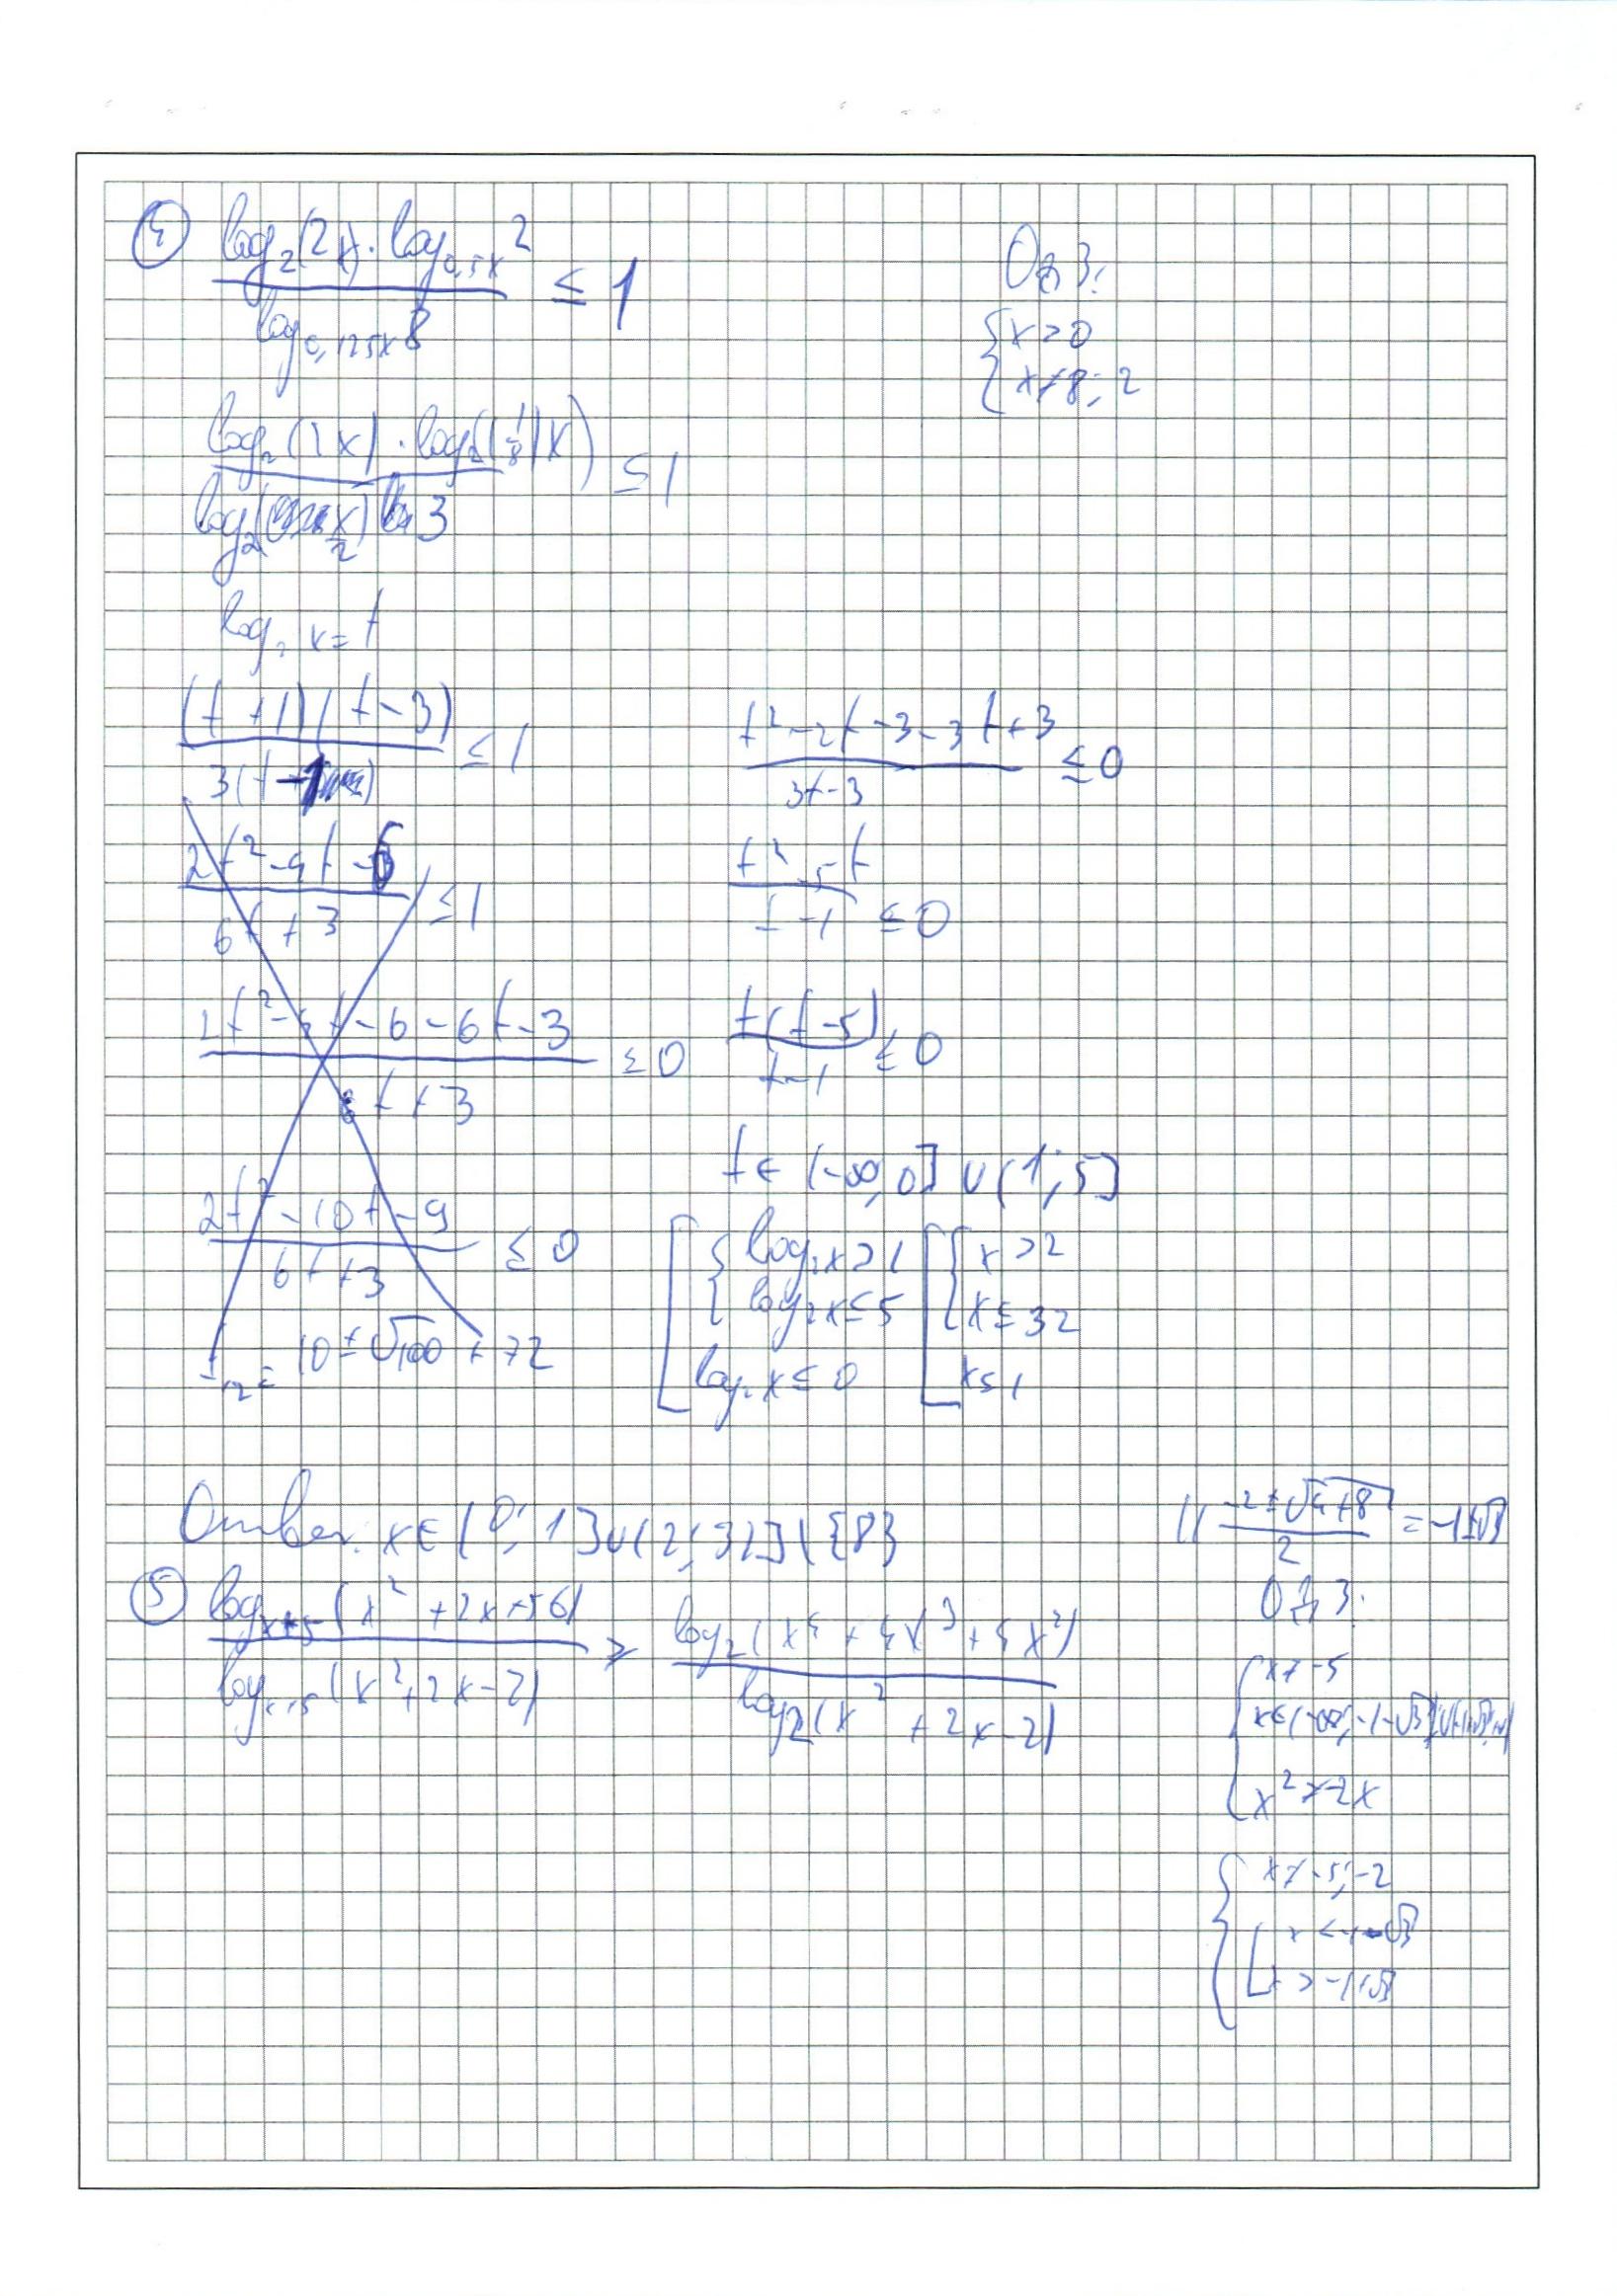 ④ (log₂(2x) · log_{0,5x} 2) / (log_{0,125x} 8) ≤ 1
ОДЗ:
{ x > 0
{ x ≠ 8; 2
(log₂(2x) · log₂((1/8)x)) / (log₂(x/2) 3) ≤ 1
log₂ x = t
((t+1)(t-3)) / (3(t-1)) ≤ 1
(2t² - 4t - 6) / (6t + 3) ≤ 1
(2t² - 4t - 6 - 6t - 3) / (6t + 3) ≤ 0
(2t² - 10t - 9) / (6t + 3) ≤ 0
t₁,₂ = 10 ± √100 + 72
(t² - 2t - 3 - 3t + 3) / (3t - 3) ≤ 0
(t² - 5t) / (t - 1) ≤ 0
(t(t-5)) / (t-1) ≤ 0
t ∈ (-∞; 0] ∪ (1; 5]
[ { log₂x > 1 [ { x > 2
{ log₂x ≤ 5 { x ≤ 32
log₂ x ≤ 0 x ≤ 1
Ответ: x ∈ (0; 1] ∪ (2; 32] \ {8}
⑤ (log_{x+5} (x² + 2x + 56)) / (log_{x+5} (x² + 2x - 2)) ≥ (log₂(x⁴ + 4x³ + 4x²)) / (log₂(x² + 2x - 2))
// (-2 ± √4+8) / 2 = -1±√3
ОДЗ:
{ x ≠ -5
x ∈ (-∞; -1-√3) ∪ (-1+√3; +∞)
x² ≠ -2x
{ x ≠ -5; -2
[ x < -1-√3
x > -1+√3